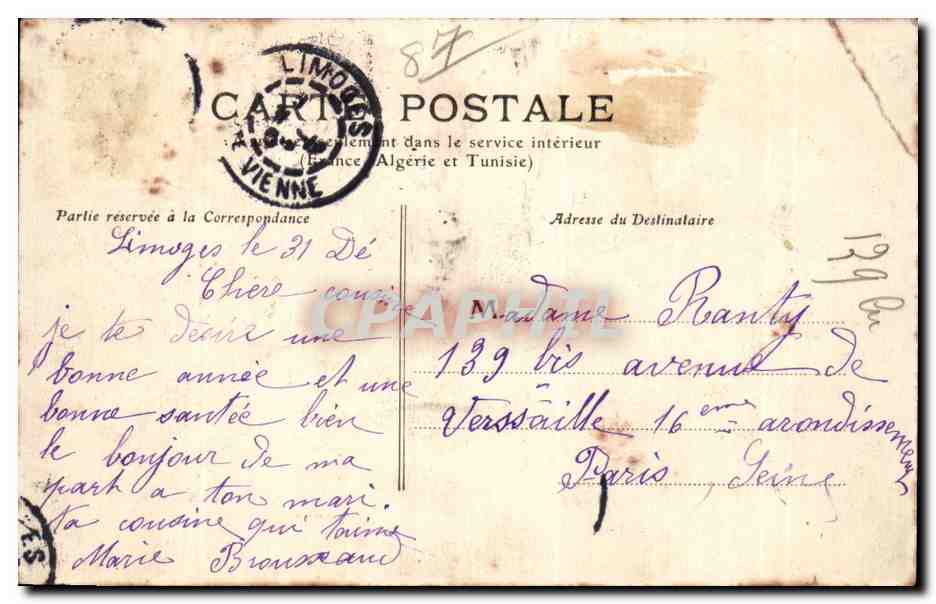 87
LIMOGES
VIENNE
CARTE POSTALE
dans le service intérieur
(France Algérie et Tunisie)
Partie réservée à la Correspondance
Limoges le 31 Dé
Chere cousine
je te désire une
bonne année et une
bonne santée bien
le bonjour de ma
part a ton mari.
ta cousine qui t'aime
Marie Brousseaud
Adresse du Destinataire
139 bis
Madame Ranty
139 bis avenue de
Verssaille 16 eme arondissement
Paris Seine
ES
CPAPHIL